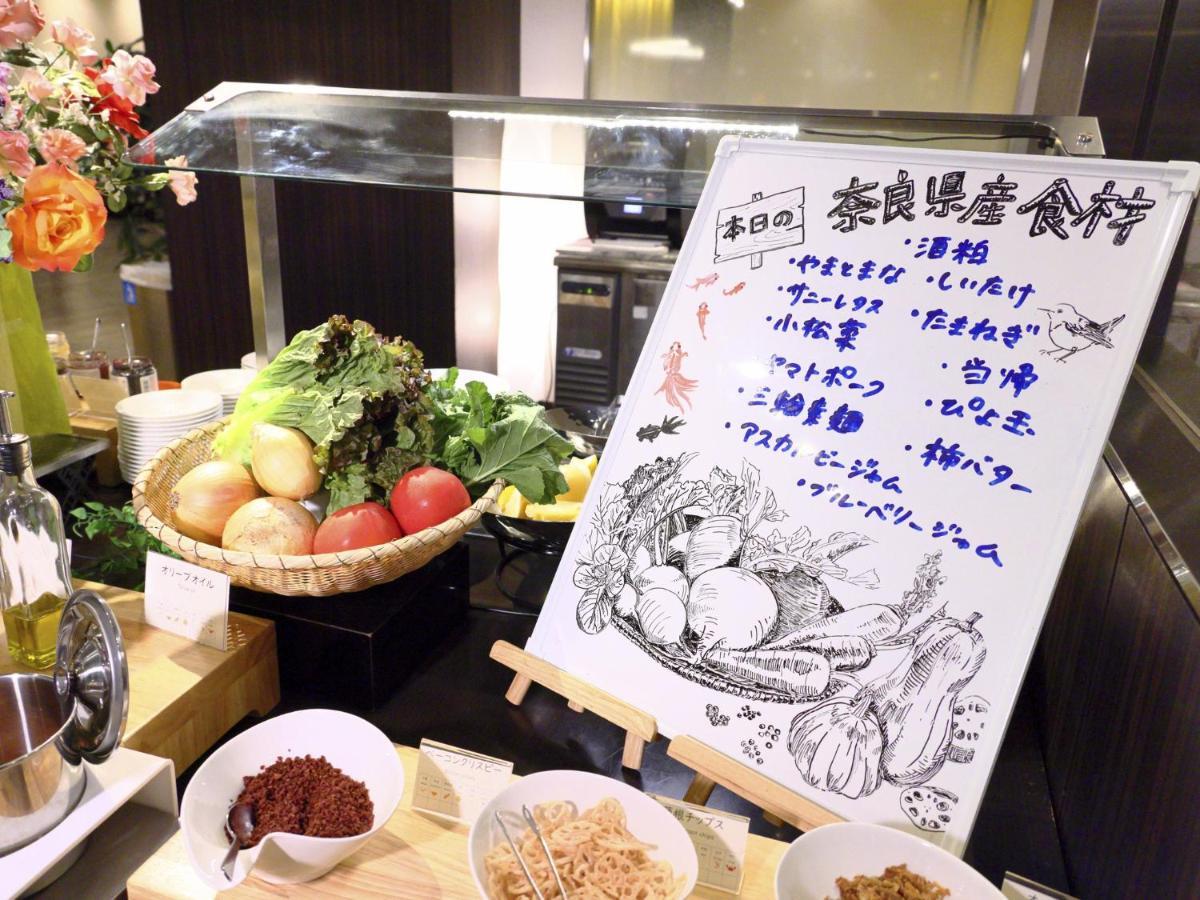 本日の
奈良県産食材
・酒粕
・やまとまな
・しいたけ
・サニーレタス
・たまねぎ
・小松菜
・当帰
ヤマトポーク
・ぴよ玉
・三輪素麺
・柿バター
・アスカルビージャム
・ブルーベリージャム
オリーブオイル
ーコンクリスピー
根チップス